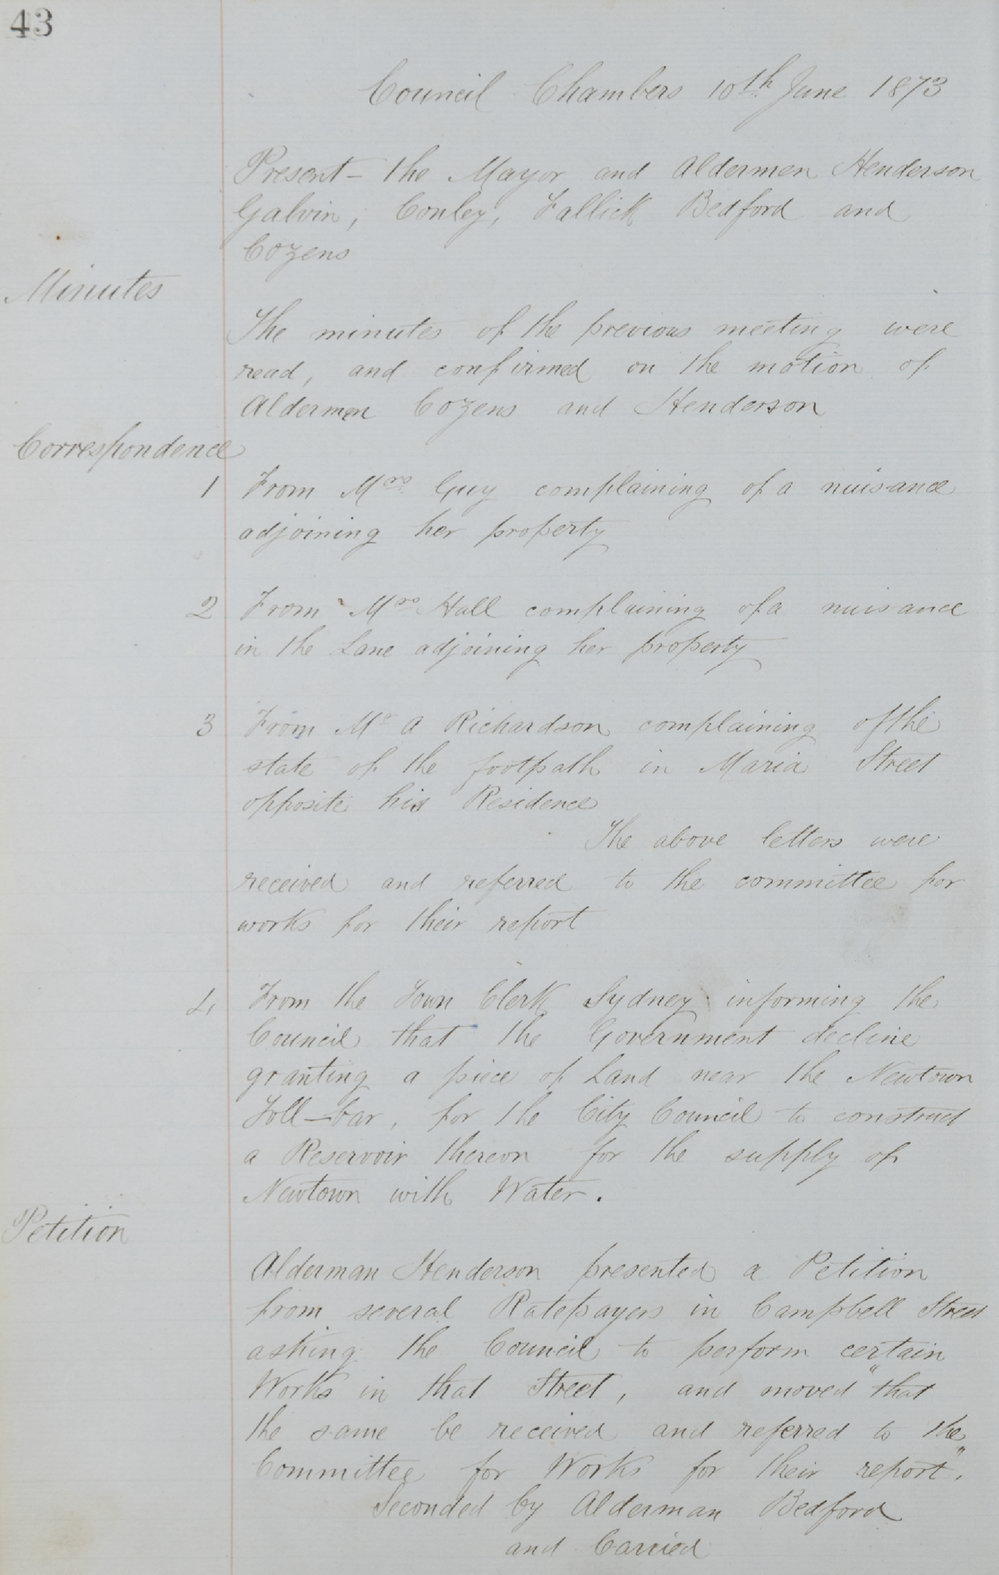 43
Council Chambers 10th June 1873
Present - the Mayor and Aldermen Henderson
Galvin, Conley, Fallick Bedford and
Cozens
Minutes
The minutes of the previous meeting were
read, and confirmed on the motion of
Aldermen Cozens and Henderson
Correspondence
1 From Mrs Guy complaining of a nuisance
adjoining her property
2 From Mrs Hall complaining of a nuisance
in the Lane adjoining her property
3 From Mr A Richardson complaining of the
state of the footpath in Maria Street
opposite his Residence
The above letters were
received and referred to the committee for
works for their report
4 From the Town Clerk Sydney informing the
Council that the Government decline
granting a piece of Land near the Newtown
Toll-bar, for the City Council to construct
a Reservoir thereon for the supply of
Newtown with Water.
Petition
Alderman Henderson presented a Petition
from several Ratepayers in Campbell Street
asking the Council to perform certain
Works in that Street, and moved "that
the same be received and referred to the
Committee for Works for their report".
Seconded by Alderman Bedford
and Carried